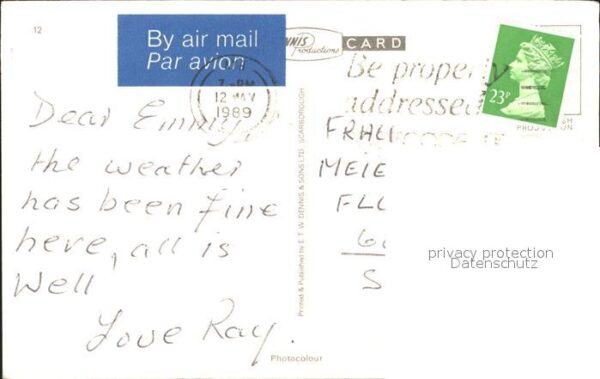 12
By air mail
Par avion
DENNIS
Productions
CARD
7 PM
12 MAY
1989
Be properly
addressed
23P
Dear
the weather
has been fine
here, all is
Well
Love Ray.
FRAU
MEIE
FLU
S
privacy protection
Datenschutz
Printed & Published by E. T. W. DENNIS & SONS LTD. SCARBOROUGH
Photocolour